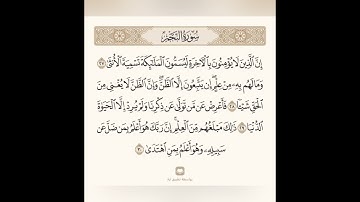 سُورَةُ النَّجْمِ
إِنَّ الَّذِينَ لَا يُؤْمِنُونَ بِالْآخِرَةِ لَيُسَمُّونَ الْمَلَائِكَةَ تَسْمِيَةَ الْأُنثَىٰ ٢٧
وَمَا لَهُم بِهِ مِنْ عِلْمٍ إِن يَتَّبِعُونَ إِلَّا الظَّنَّ وَإِنَّ الظَّنَّ لَا يُغْنِي مِنَ
الْحَقِّ شَيْئًا ٢٨ فَأَعْرِضْ عَن مَّن تَوَلَّىٰ عَن ذِكْرِنَا وَلَمْ يُرِدْ إِلَّا الْحَيَاةَ
الدُّنْيَا ٢٩ ذَٰلِكَ مَبْلَغُهُم مِّنَ الْعِلْمِ إِنَّ رَبَّكَ هُوَ أَعْلَمُ بِمَن ضَلَّ عَن
سَبِيلِهِ وَهُوَ أَعْلَمُ بِمَنِ اهْتَدَىٰ ٣٠